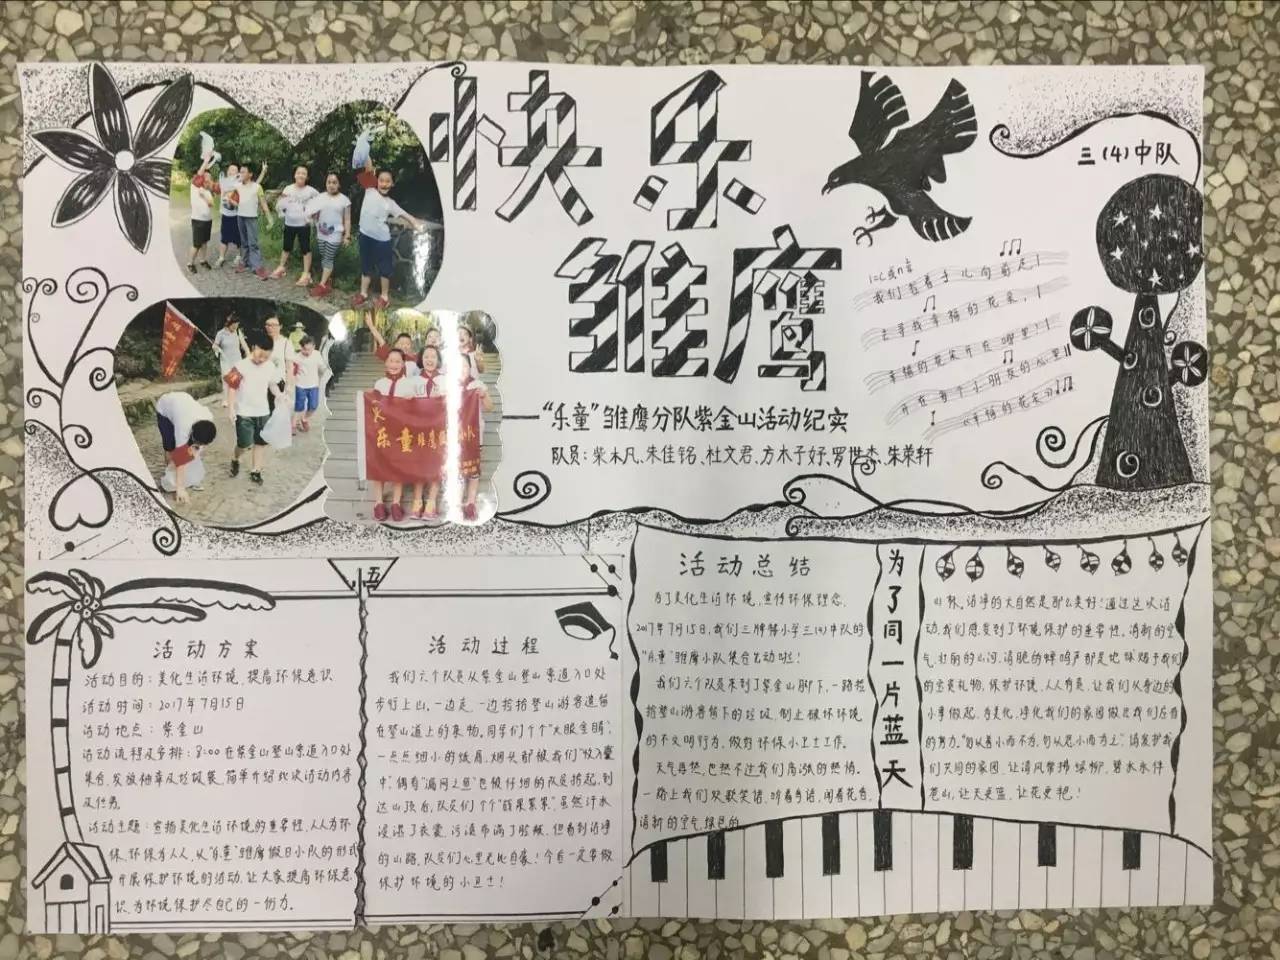 快乐
雏鹰
三(4)中队
我们拉着手儿向前走|
去寻找幸福的花朵，|
幸福的花朵开在哪里?|
开在每个小朋友的心里||
——“乐童”雏鹰分队紫金山活动纪实
队员:柴木凡、朱佳铭、杜文君、方木子妤、罗世杰、朱荣轩
乐童
活动方案
活动目的:美化生活环境,提高环保意识
活动时间:2017年7月15日
活动地点:紫金山
活动流程及安排:8:00在紫金山登山索道入口处
集合,发放袖章及垃圾袋,简单介绍此次活动内容
及任务。
活动主题:宣扬美化生活环境的重要性,人人为环
保,环保为人人,以“乐童”雏鹰假日小队的形式
开展保护环境的活动,让大家提高环保意
识,为环境保护尽自己的一份力。
五
活动过程
我们六个队员从紫金山登山索道入口处
步行上山,一边走,一边捡拾登山游客遗留
在登山道上的果物。同学们个个“火眼金睛”,
一点点细小的纸屑、烟头都被我们“收入囊
中”,偶有“漏网之鱼”也被仔细的队员捡起,到
达山顶后,队员们个个“硕果累累”,虽然汗水
浸湿了衣裳,污渍布满了脸颊,但看到洁净
的山路,队员们心里无比自豪!今后一定要做
保护环境的小卫士!
活动总结
为了美化生活环境,宣传环保理念,
2017年7月15日,我们三牌楼小学三(4)中队的
“乐童”雏鹰小队集合出动啦!
我们六个队员来到了紫金山脚下,一路捡
拾登山游客留下的垃圾,制止破坏环境
的不文明行为,做好环保小卫士工作。
天气再热,也热不过我们高涨的热情。
一路上我们欢歌笑语,听着鸟语,闻着花香,
清新的空气,绿色的
为了同一片蓝天
山林,洁净的大自然是那么美好!通过这次活
动,我们感受到了环境保护的重要性。清新的空
气,壮丽的山河,清脆的蝉鸣声都是地球赐于我们
的宝贵礼物,保护环境,人人有责,让我们从身边的
小事做起,为美化、净化我们的家园做出我们应有
的努力。“勿以善小而不为,勿以恶小而为之”,请爱护我
们共同的家园,让清风常拂绿柳,碧水永伴
苍山,让天更蓝,让花更艳!